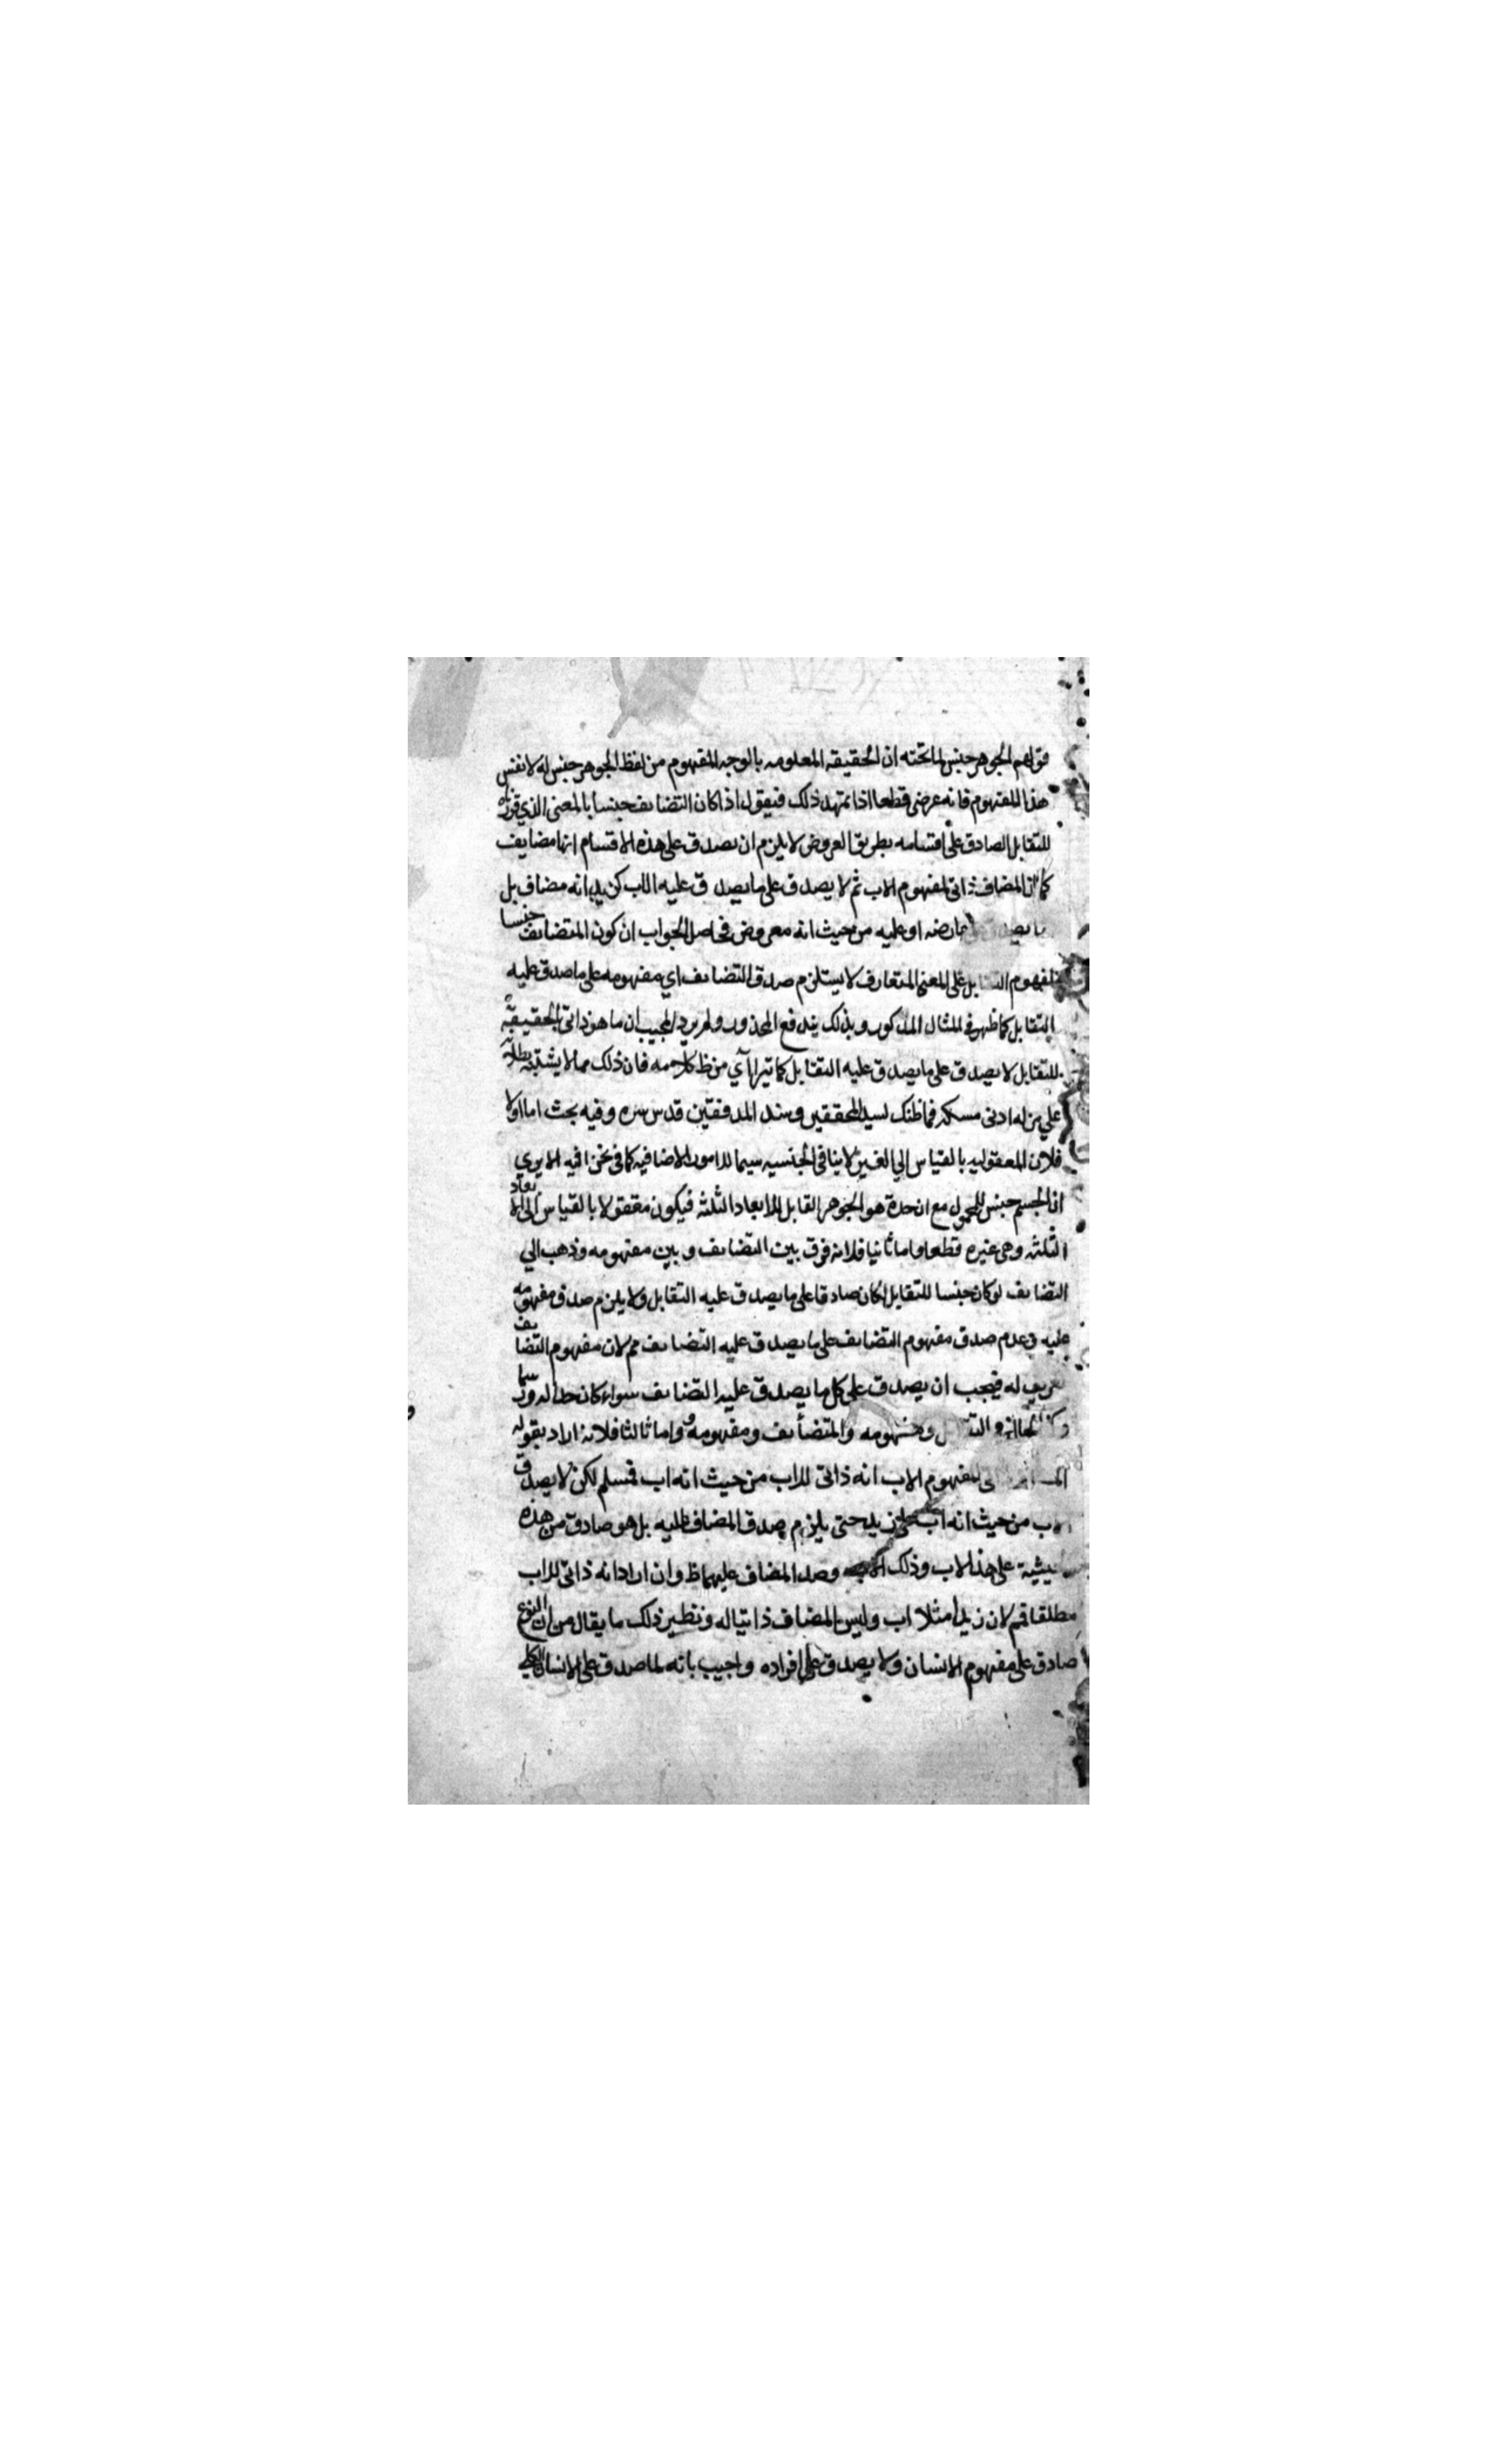 قولهم الجوهر جنس لما تحته ان الحقيقه المعلومه بالوجه المفهوم من لفظ الجوهر جنس له لا نفس
هذا المفهوم فانه عرضى قطعا اذا تمهد ذلك فنقول اذا كان التضايف جنسا بالمعنى الذي قررناه
للتقابل الصادق على اقسامه بطريق العروض لا يلزم ان يصدق على هذه الاقسام انها مضايف
كما ان المضاف ذاتى لمفهوم الاب ثم لا يصدق على ما يصدق عليه الاب كزيد انه مضاف بل
ما يصدق عارضه او عليه من حيث انه معروض فحاصل الجواب ان كون المتضايف جنسا
لمفهوم التقابل على المعنى المتعارف لا يستلزم صدق التضايف اي مفهومه على ما صدق عليه
التقابل كما ظهر فى المثال المذكور وبذلك يندفع المحذور ولم يرد المجيب ان ما هو ذاتى لحقيقة
للتقابل لا يصدق على ما يصدق عليه التقابل كما يتراآي من ظ كلامه فان ذلك مما لا يشتبه بطلانه
علي من له ادنى مسكه فما ظنك لسيد المحققين وسند المدققين قدس سره وفيه بحث اما اولا
فلان المعقوليه بالقياس الي الغير لا ينافى الجنسيه سيما للامور الاضافيه كما فى نحن فيه الا يري
ان الجسم جنس للمحمول مع ان حده هو الجوهر القابل للابعاد الثلثه فيكون معقولا بالقياس الى الابعاد
الثلثه وهى غيره قطعا واما ثانيا فلانه فرق بين التضايف وبين مفهومه وذهب الي
التضايف لو كان جنسا للتقابل لكان صادقا على ما يصدق عليه التقابل ولا يلزم صدق مفهومه
عليه وعدم صدق مفهوم التضايف على ما يصدق عليه التضايف مم لان مفهوم التضايف
تعريف له فيجب ان يصدق على كل ما يصدق عليه التضايف سواء كان حدا له ورسما
وكذا الحال فى التقابل ومفهومه والمتضايف ومفهومه واما ثالثا فلانه ان اراد بقوله
لمفهوم الاب انه ذاتى للاب من حيث انه اب فمسلم لكن لا يصدق
الاب من حيث انه اب على زيد حتى يلزم صدق المضاف عليه بل هو صادق من هذه
الحيثية على هذا الاب وذلك الاب وصدق المضاف عليهما ظ وان اراد انه ذاتى للاب
مطلقا فمم لان زيدا مثلا اب وليس المضاف ذاتيا له ونظير ذلك ما يقال من ان النوع
صادق على مفهوم الانسان ولا يصدق على افراده واجيب بانه لما صدق على الانسان الكلي